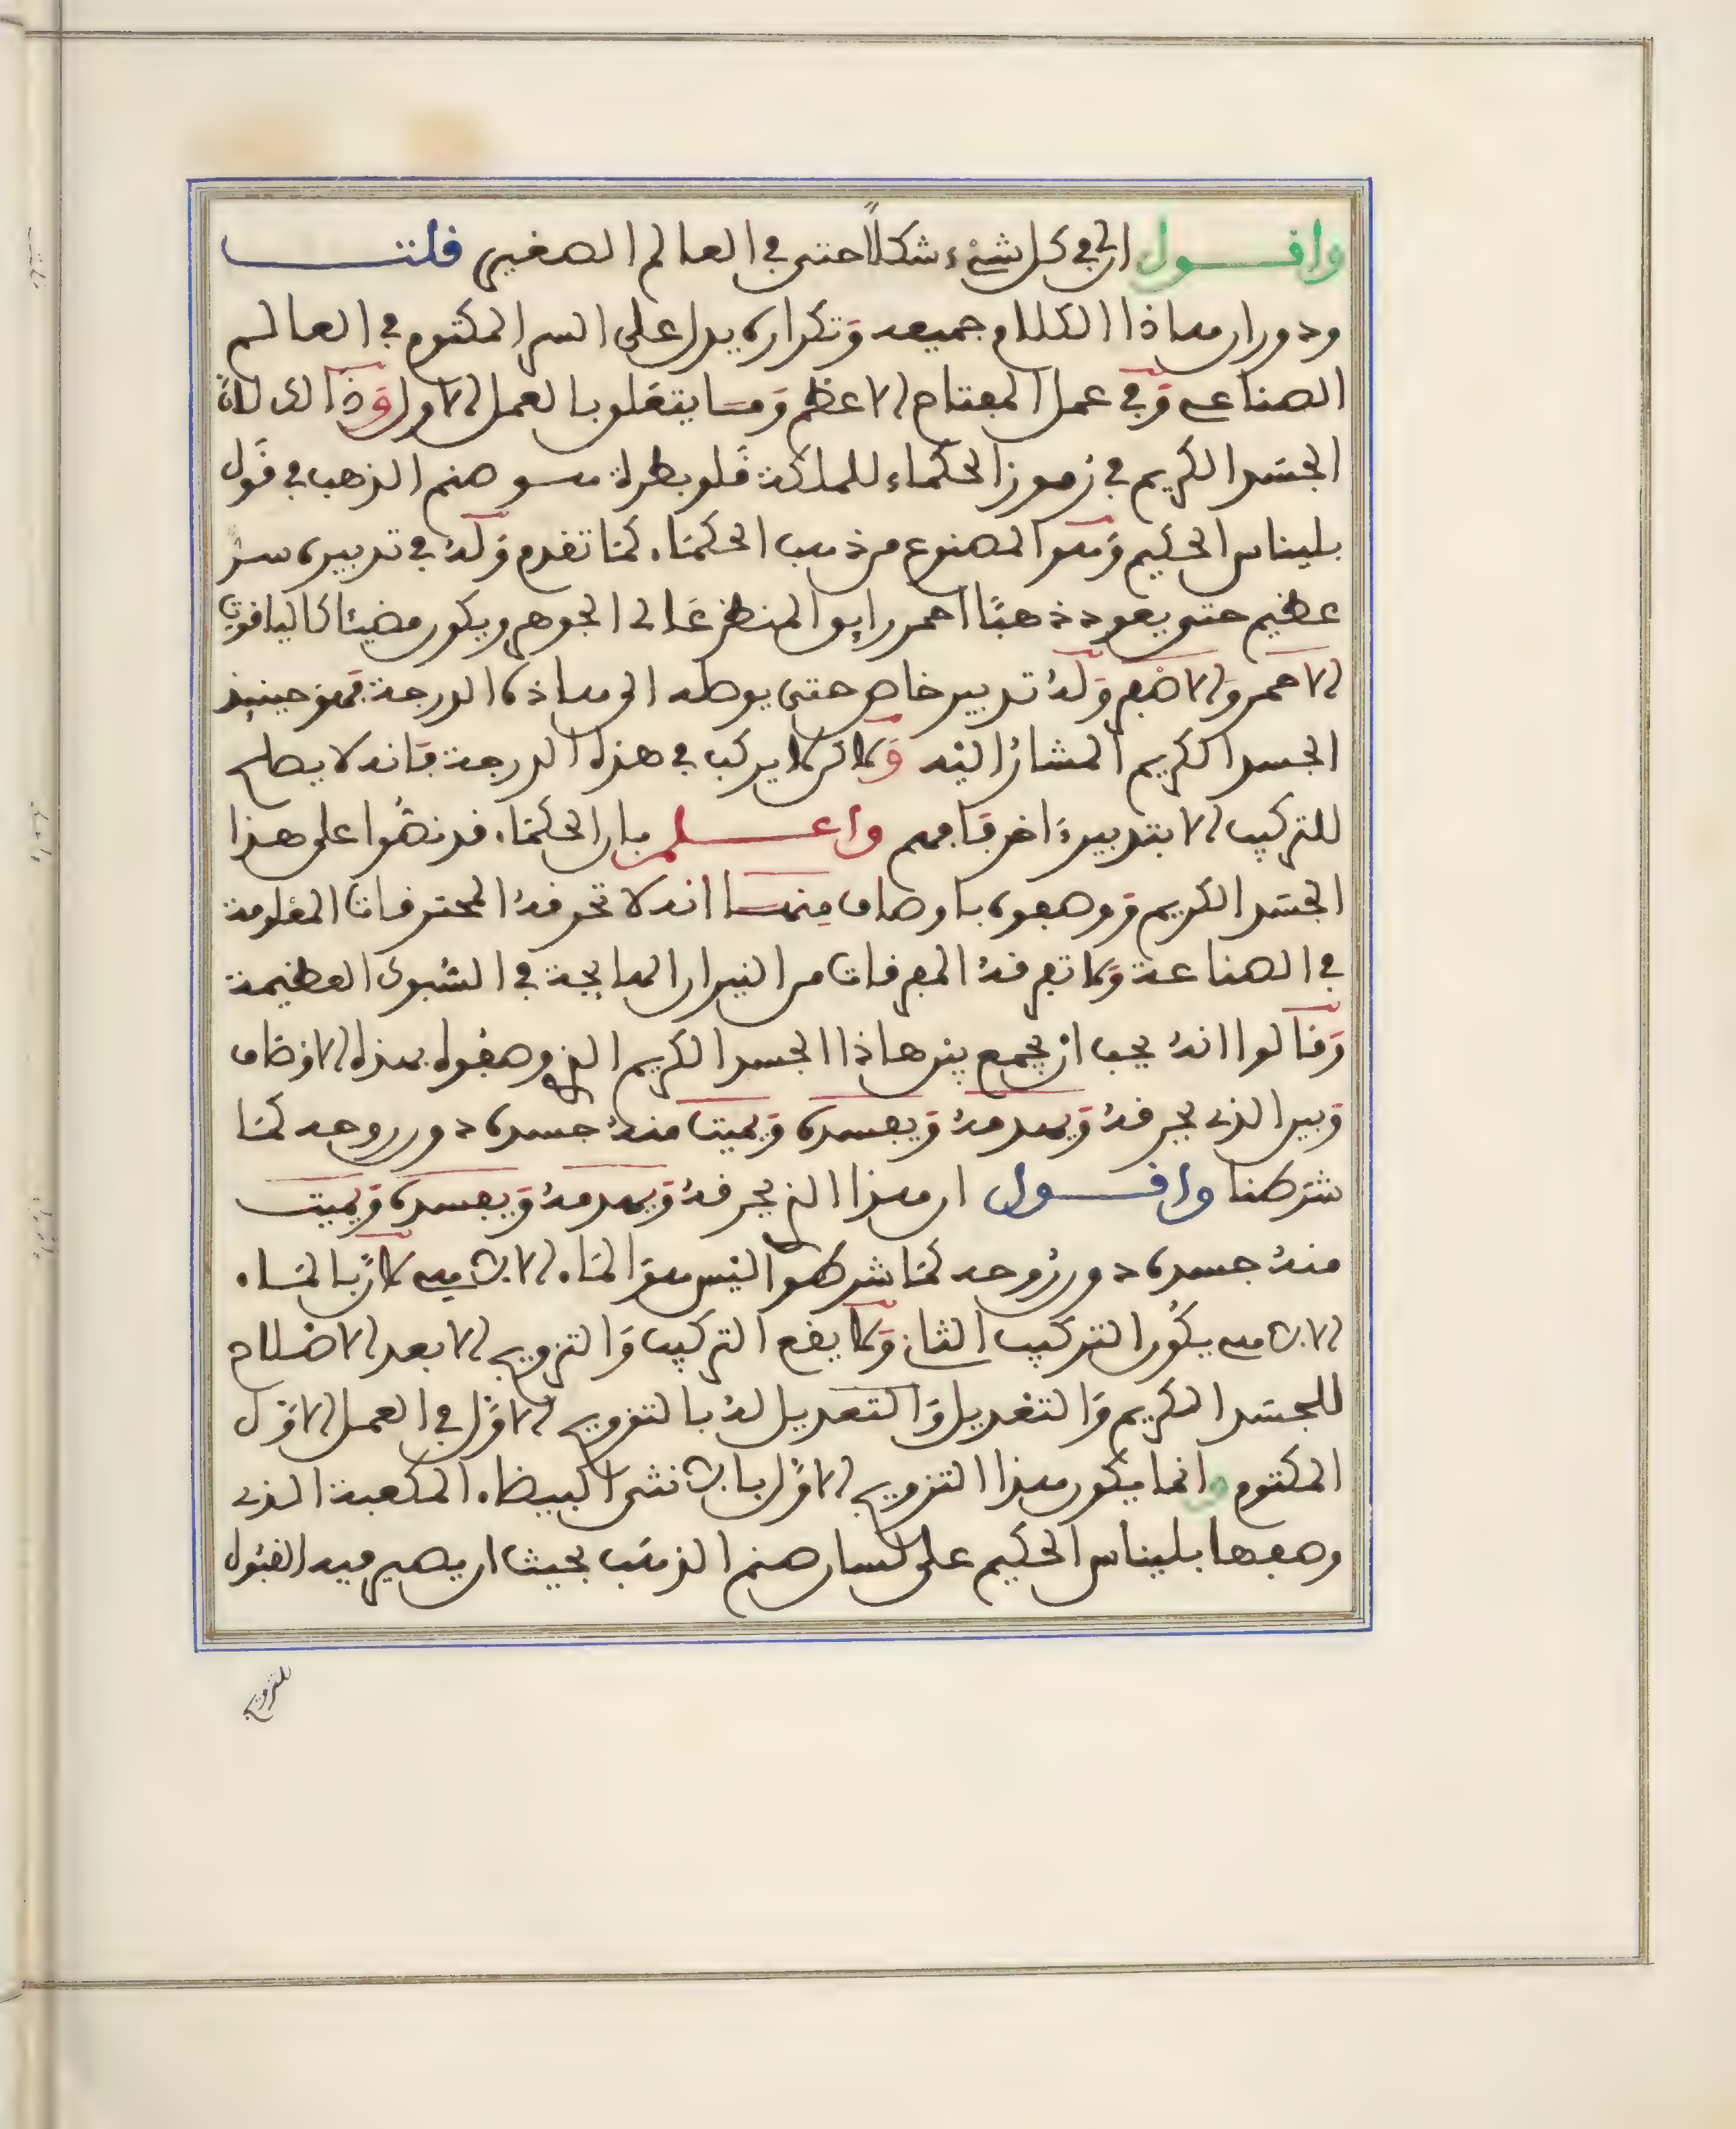 واقول ان في كل شيء شكلاً حتى في العالم الصغير قلت
ودوران هاذا الكلام جميعه وتكراره يدل على السر المكتوم في العالم
الصناعي وفي عمل المفتاح الاعظم وما يتعلق بالعمل الاول وذالك لان
الجسد الكريم في رموز الحكماء للملكة قلوبطرة هو صنم الذهب في قول
بليناس الحكيم وهو المصنوع من ذهب الحكماء كما تقدم وله في تدبيره سر
عظيم حتى يعود ذهبًا احمر رايق المنظر عالى الجوهر ويكون مضيئا كالياقوت
الاحمر والاصفر وله تدبير خاص حتى يوصله الى هاذه الدرجة فهو حينيذ
الجسد الكريم المشار اليه ولاكن لا يركب في هذه الدرجة فانه لا يصلح
للتركيب الا بتدبير اخر فافهم واعلم بان الحكماء قد نصوا على هذا
الجسد الكريم ووصفوه باوصاف منها انه لا تحرقه المحترقات المعلومة
في الصناعة ولا تفرقه المفرقات من النيران الهايجة في السبوك العظيمة
وقالوا انه يجب ان يجمع بين هاذا الجسد الكريم الذي وصفوه بهذه الاوصاف
وبين الذي يحرقه ويهدمه ويفسده ويميت منه جسده دون روحه كما
شرطنا واقول ان هذا الذي يحرقه ويهدمه ويفسده ويميت
منه جسده دون روحه كما شرطوا ليس هو الماء الالهي لان بالماء
الالهي يكون التركيب الثاني ولا يقع التركيب والتزويج الا بعد الاصلاح
للجسد الكريم والتغديل والتعديل له بالتزويج الاول في العمل الاول
المكتوم وانما يكون هذا التزويج الاول بالانثى البيضاء المكعبة الذي
وصفها بليناس الحكيم على لسان صنم الذهب بحيث ان يصير فيه القبول
للتزويج